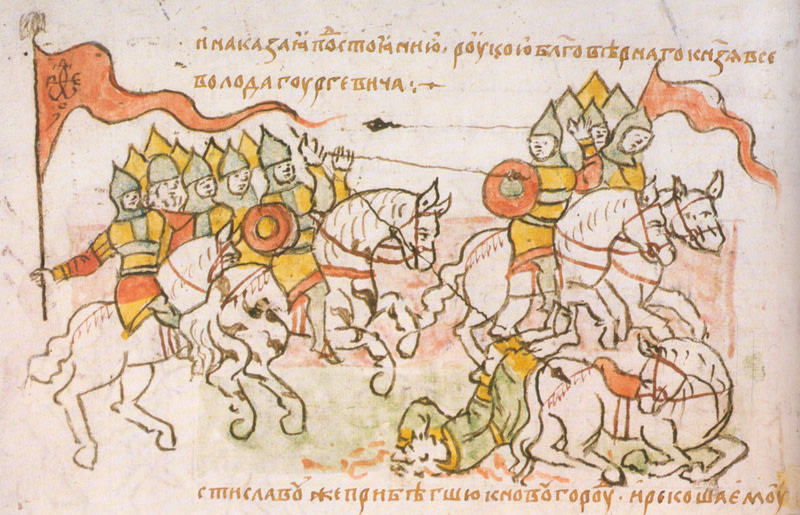 и наказаꙗ по достоꙗнию, роукою блг҃овѣрнаго кнѧзѧ все
волода гоургевича :·
стиславоу же прибѣгшю к новоугороⷣу · и рекоша емоу